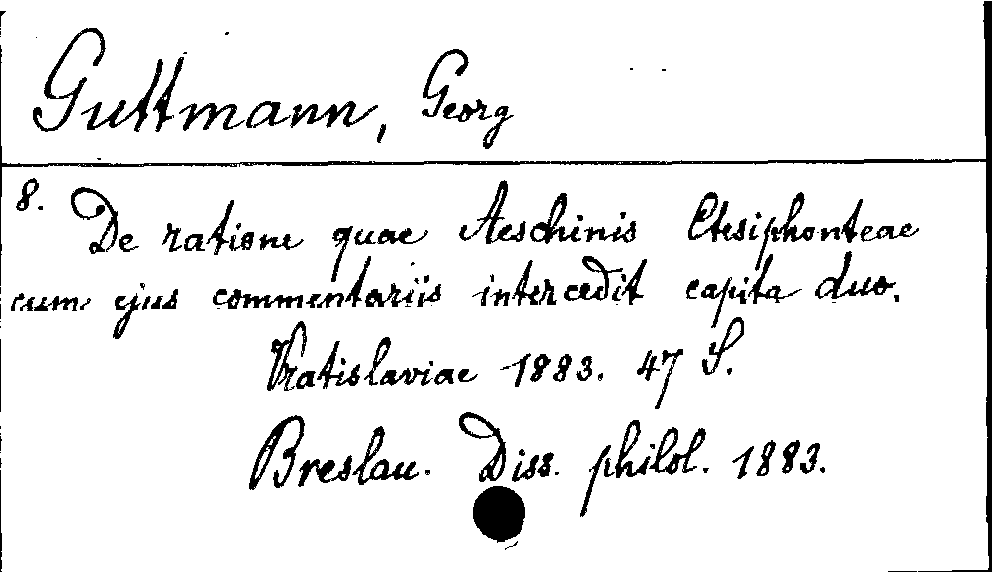 Guttmann, Georg
8. De ratione quae Aeschinis Ctesiphonteae
cum ejus commentariis intercedit capita duo.
Vratislaviae 1883. 47 S.
Breslau. Diss. philol. 1883.